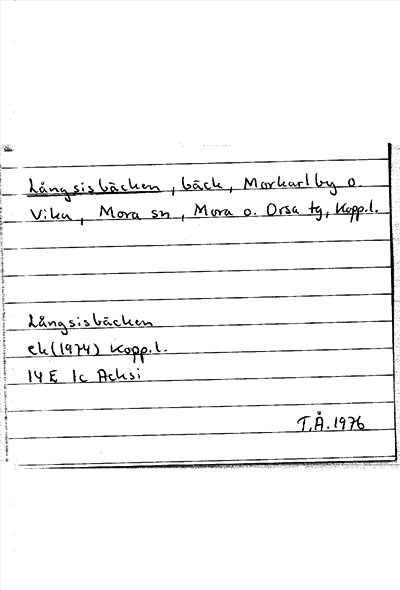 Långsisbäcken, bäck, Morkarlby o.
Vika, Mora sn, Mora o. Orsa tg, Kopp.l.
Långsisbäcken
ek(1974) Kopp.l.
14 E 1c Acksi
T.Å.1976